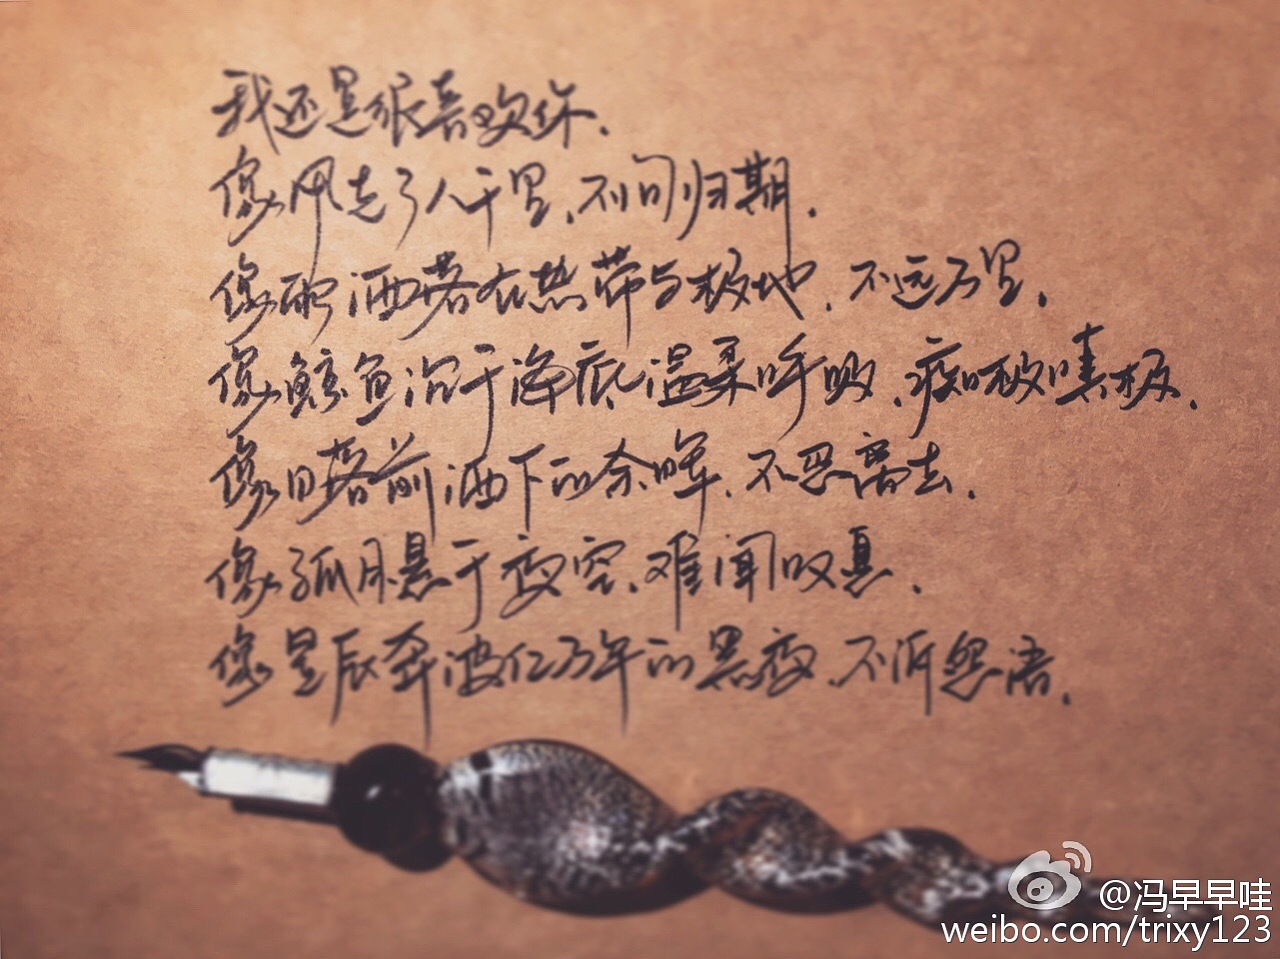 我还是很喜欢你.
像风走了八千里,不问归期.
像雨洒落在热带与极地,不远万里.
像鲸鱼沉于海底温柔呼吸,痴极嗔极.
像日落前洒下的余晖,不忍离去.
像孤月悬于夜空,难闻叹息.
像星辰奔波亿万年的黑夜,不诉怨语.
@冯早早哇
weibo.com/trixy123